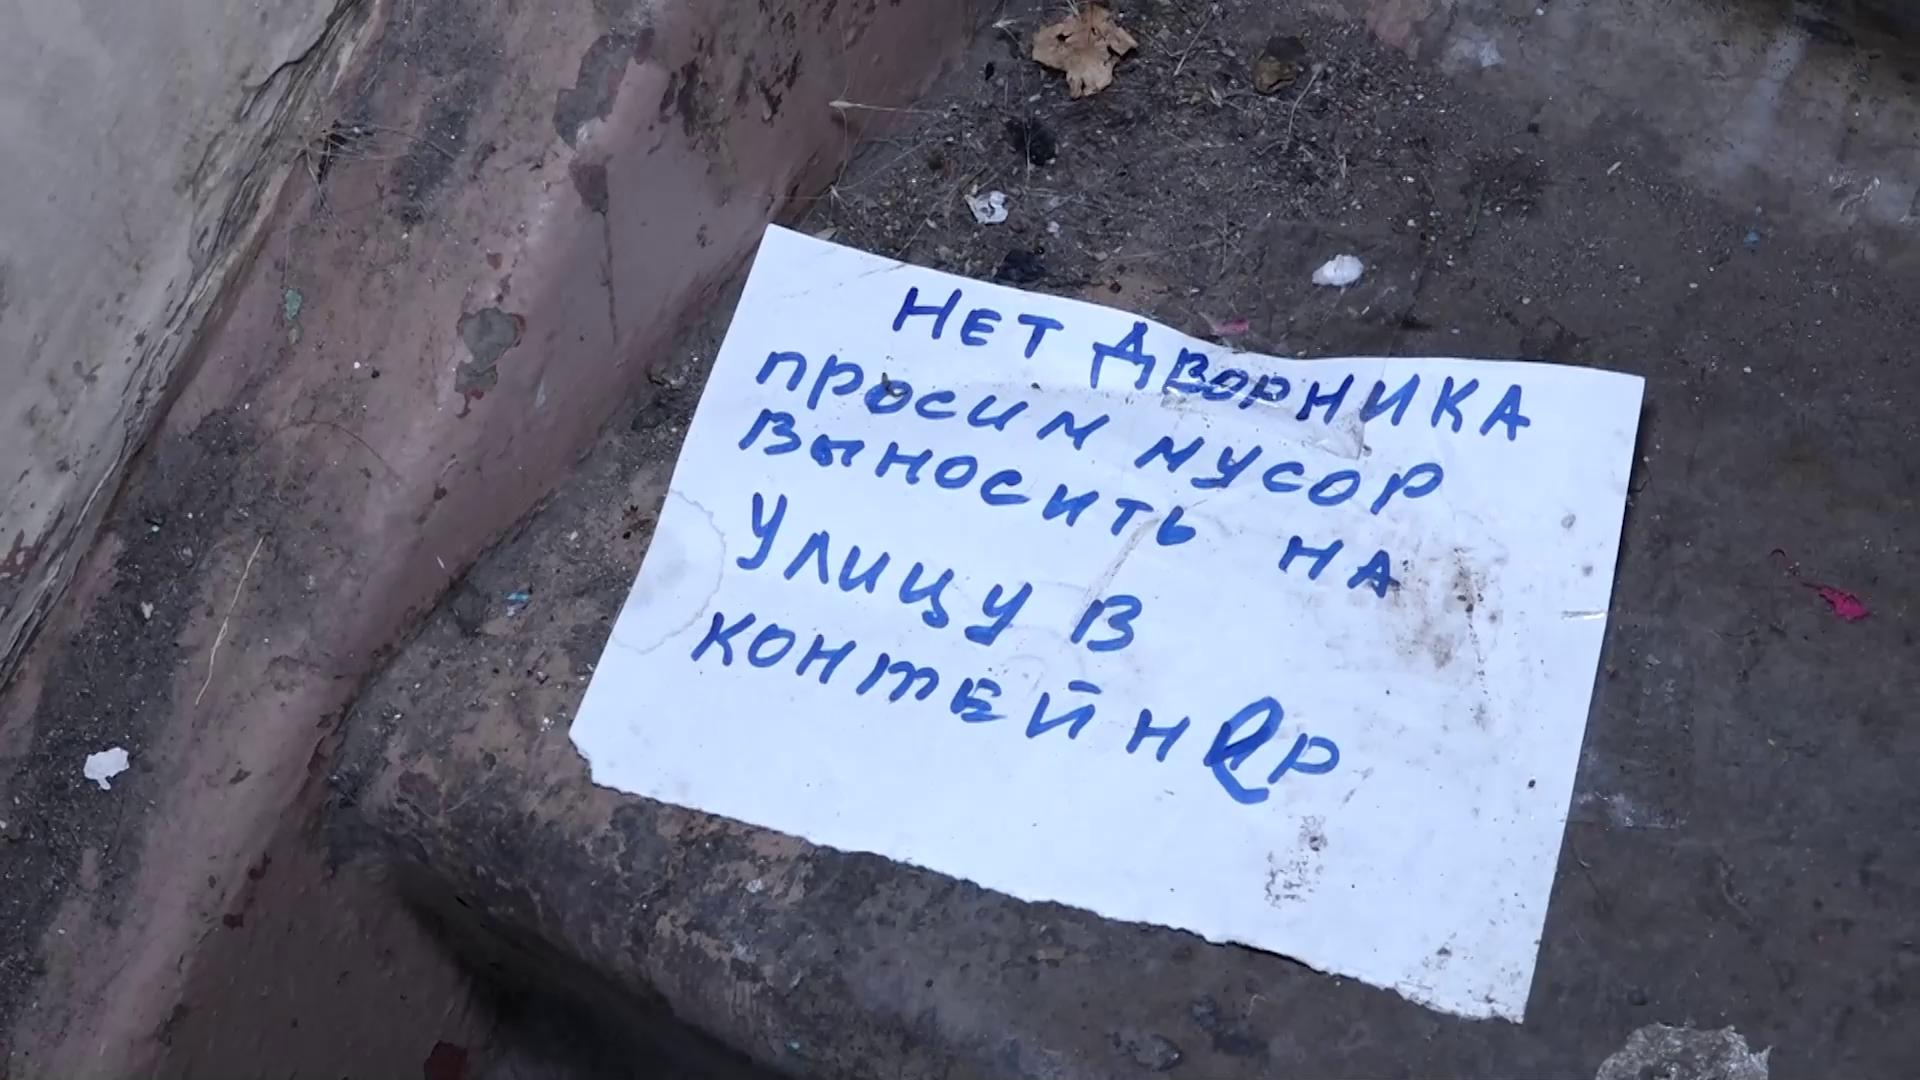 НЕТ ДВОРНИКА
ПРОСИМ МУСОР
ВЫНОСИТЬ НА
УЛИЦУ В
КОНТЕЙНЕР